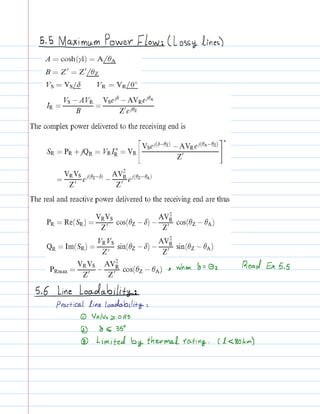 5.5 Maximum Power Flow: (Lossy lines)
A = cosh(γl) = A/θA
B = Z′ = Z′/θZ
VS = VS/δ VR = VR/0°
IR = (VS − AVR) / B = (VS e^{jδ} − AVR e^{jθA}) / (Z′ e^{jθZ})
The complex power delivered to the receiving end is
SR = PR + jQR = VR IR* = VR [ (VS e^{j(δ−θZ)} − AVR e^{j(θA−θZ)}) / Z′ ]*
= (VR VS / Z′) e^{j(θZ−δ)} − (AVR² / Z′) e^{j(θZ−θA)}
The real and reactive power delivered to the receiving end are thus
PR = Re(SR) = (VR VS / Z′) cos(θZ − δ) − (AVR² / Z′) cos(θZ − θA)
QR = Im(SR) = (VR VS / Z′) sin(θZ − δ) − (AVR² / Z′) sin(θZ − θA)
PRmax = (VR VS / Z′) − (AVR² / Z′) cos(θZ − θA) , when δ = θz Read Ex 5.5
5.6 Line Loadability:
Practical line loadability:
① VR/Vs ≥ 0.95
② δ ≤ 35°
③ Limited by thermal rating. (l < 80km)